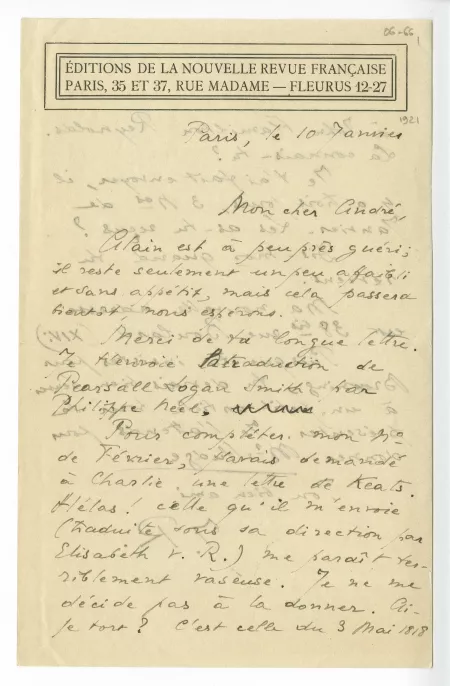 06-66
ÉDITIONS DE LA NOUVELLE REVUE FRANÇAISE
PARIS, 35 ET 37, RUE MADAME — FLEURUS 12-27
1921
Paris, le 10 Janvier
Mon cher André,
Alain est à peu près guéri;
il reste seulement un peu affaibli
et sans appétit, mais cela passera
bientôt nous espérons.
Merci de ta longue lettre.
Je t'envoie la traduction de
Pearsall Logan Smith par
Philippe Neel.
Pour compléter mon No
de Février, j'avais demandé
à Charlie une lettre de Keats.
Hélas! celle qu'il m'envoie
(traduite sous sa direction par
Elisabeth v. R.) me paraît ter-
riblement vaseuse. Je ne me
décide pas à la donner. Ai-
je tort? C'est celle du 3 Mai 1818